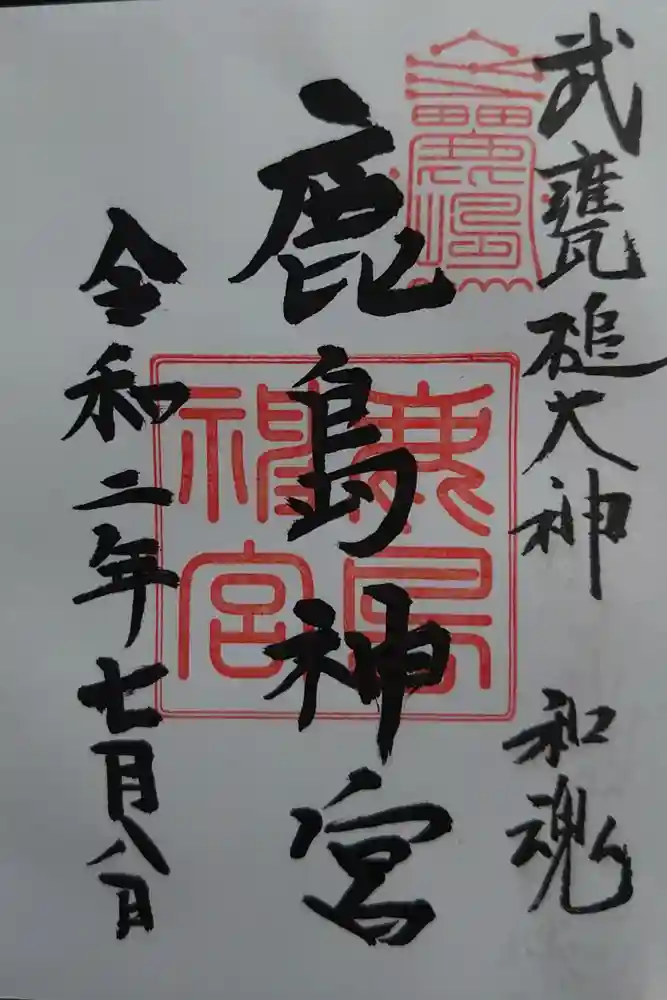 武甕槌大神 和魂
鹿島神宮
鹿島神宮
令和二年七月八日